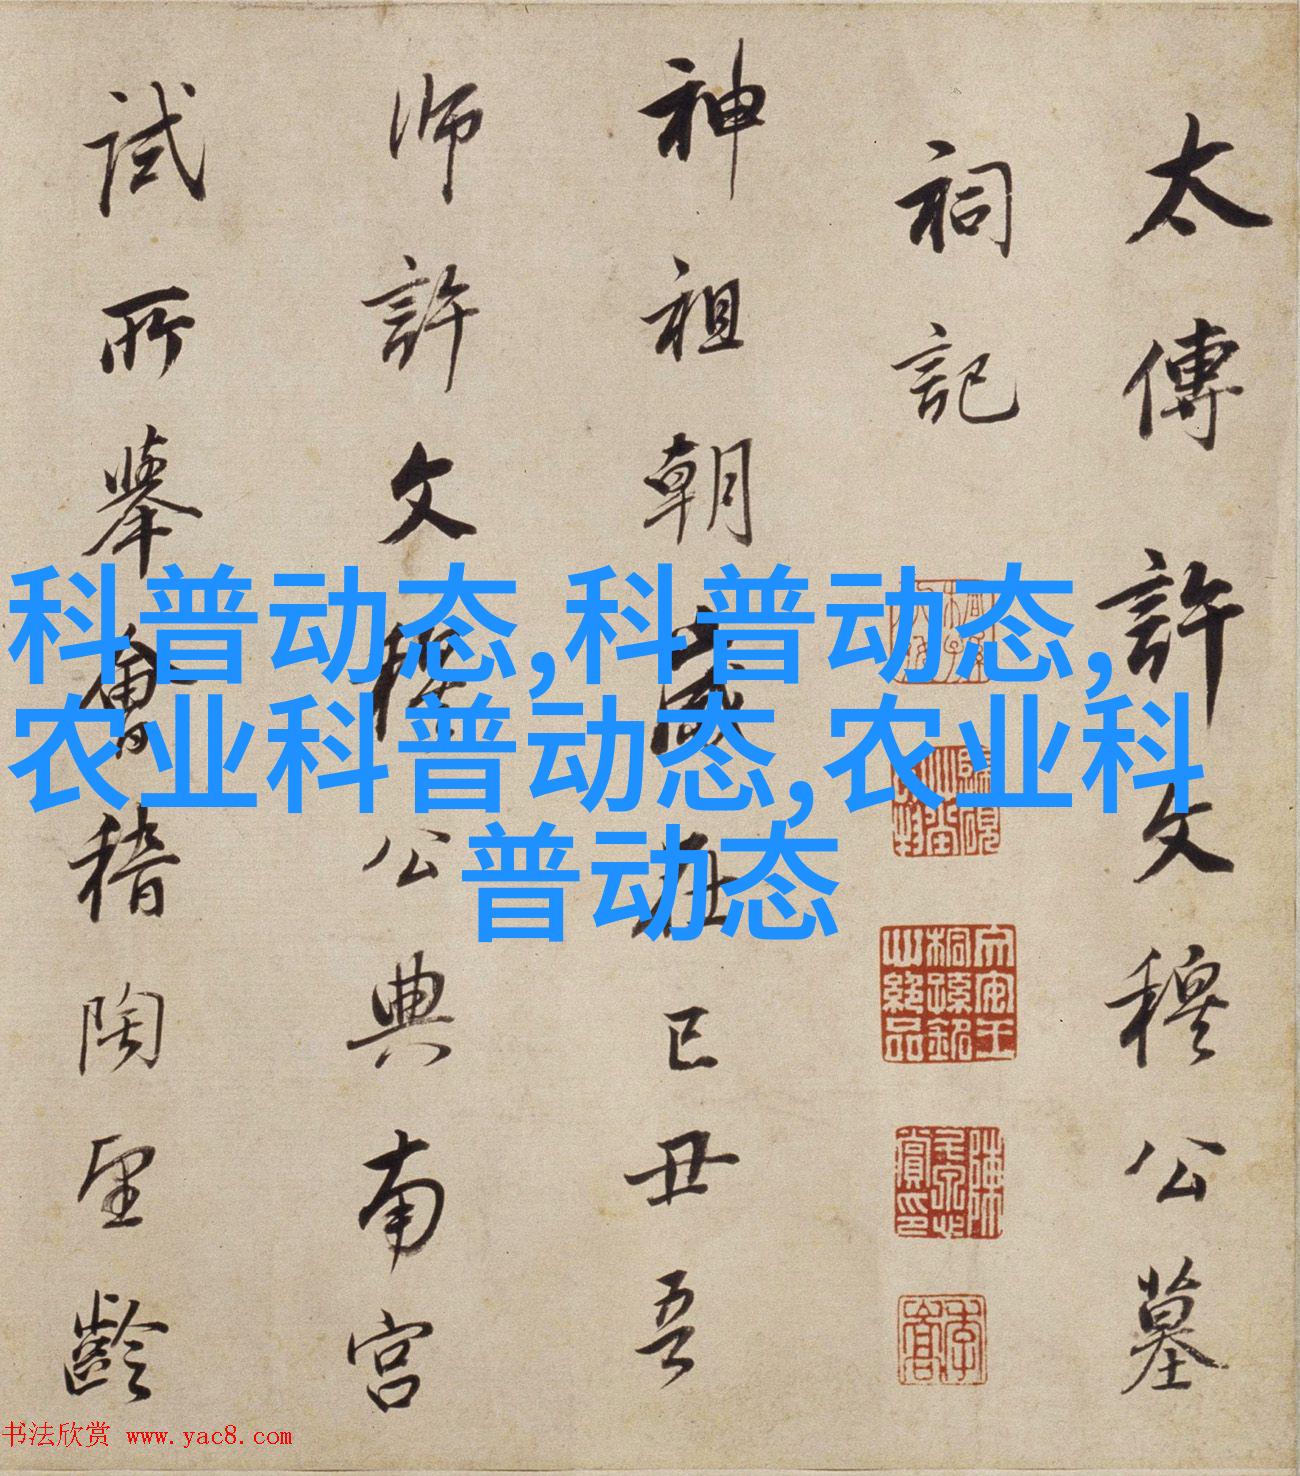 太傅許文穆公墓
祠記
神祖朝歲在己丑吾
師許文穆公典南宮
試所舉會稽陶望齡
科普动态,科普动态,
农业科普动态,农业科
普动态
书法欣赏 www.yac8.com